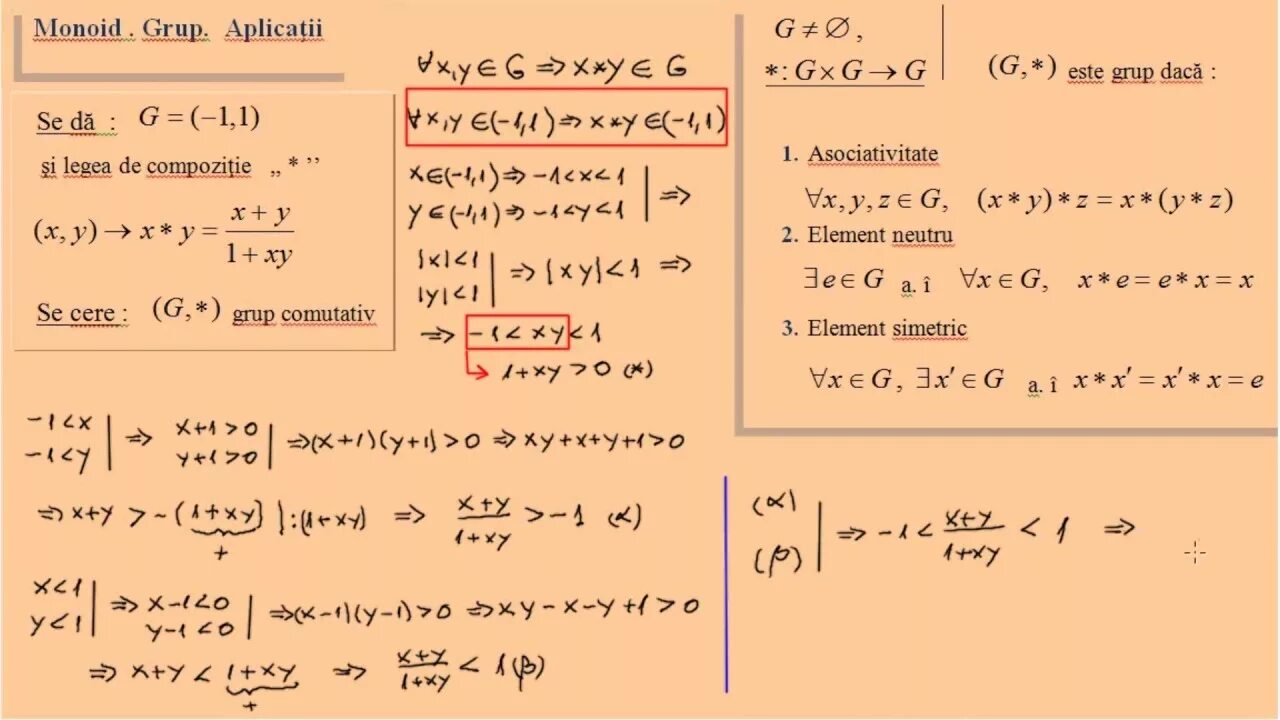 Monoid . Grup. Aplicații
Se dă : G = (−1,1)
și legea de compoziție „ * ’’
(x, y) → x * y = \frac{x + y}{1 + xy}
Se cere : (G,*) grup comutativ
∀x,y ∈ G ⇒ x*y ∈ G
∀x,y ∈(-1,1) ⇒ x*y ∈(-1,1)
x∈(-1,1) ⇒ -1<x<1
y∈(-1,1) ⇒ -1<y<1 | ⇒
|x|<1
|y|<1 | ⇒ |xy|<1 ⇒
⇒ -1 < xy < 1
1+xy > 0 (*)
G ≠ ∅ ,
* : G × G → G
(G,*) este grup dacă :
1. Asociativitate
∀x, y, z ∈ G, (x * y) * z = x * (y * z)
2. Element neutru
∃e ∈ G a. î ∀x ∈ G, x * e = e * x = x
3. Element simetric
∀x ∈ G , ∃x′ ∈ G a. î x * x′ = x′ * x = e
-1<x
-1<y | ⇒ x+1>0
y+1>0 | ⇒ (x+1)(y+1)>0 ⇒ xy+x+y+1>0
⇒ x+y > -(1+xy) | :(1+xy) ⇒ \frac{x+y}{1+xy} > -1 (α)
+
x<1
y<1 | ⇒ x-1<0
y-1<0 | ⇒ (x-1)(y-1)>0 ⇒ xy-x-y+1>0
⇒ x+y < 1+xy ⇒ \frac{x+y}{1+xy} < 1 (β)
+
(α)
(β) | ⇒ -1 < \frac{x+y}{1+xy} < 1 ⇒